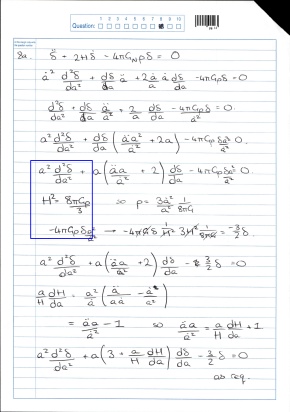 Question: 1 2 3 4 5 6 7 8 9 10
8a. δ̈ + 2Hδ̇ - 4πG_Nρδ = 0
ȧ² d²δ/da² + dδ/da ä + 2ȧ/a ȧ dδ/da - 4πGρδ = 0
d²δ/da² + dδ/da ä/ȧ² + 2/a dδ/da - 4πGρδ/ȧ² = 0
a² d²δ/da² + dδ/da (äa²/ȧ² + 2a) - 4πGρδa²/ȧ² = 0
a² d²δ/da² + a(äa/ȧ² + 2) dδ/da - 4πGρδa²/ȧ² = 0
H² = 8πGρ/3 so ρ = 3ȧ²/a² 1/8πG
-4πGρδ a²/ȧ² → -4πGδ 1/H² 3H² 1/8πG = -3/2 δ
a² d²δ/da² + a(äa/ȧ² + 2) dδ/da - 3/2 δ = 0
a/H dH/da = a²/ȧ (ä/aȧ - ȧ/a²)
= äa/ȧ² - 1 so äa/ȧ² = a/H dH/da + 1
a² d²δ/da² + a(3 + a/H dH/da) dδ/da - 3/2 δ = 0
as req.